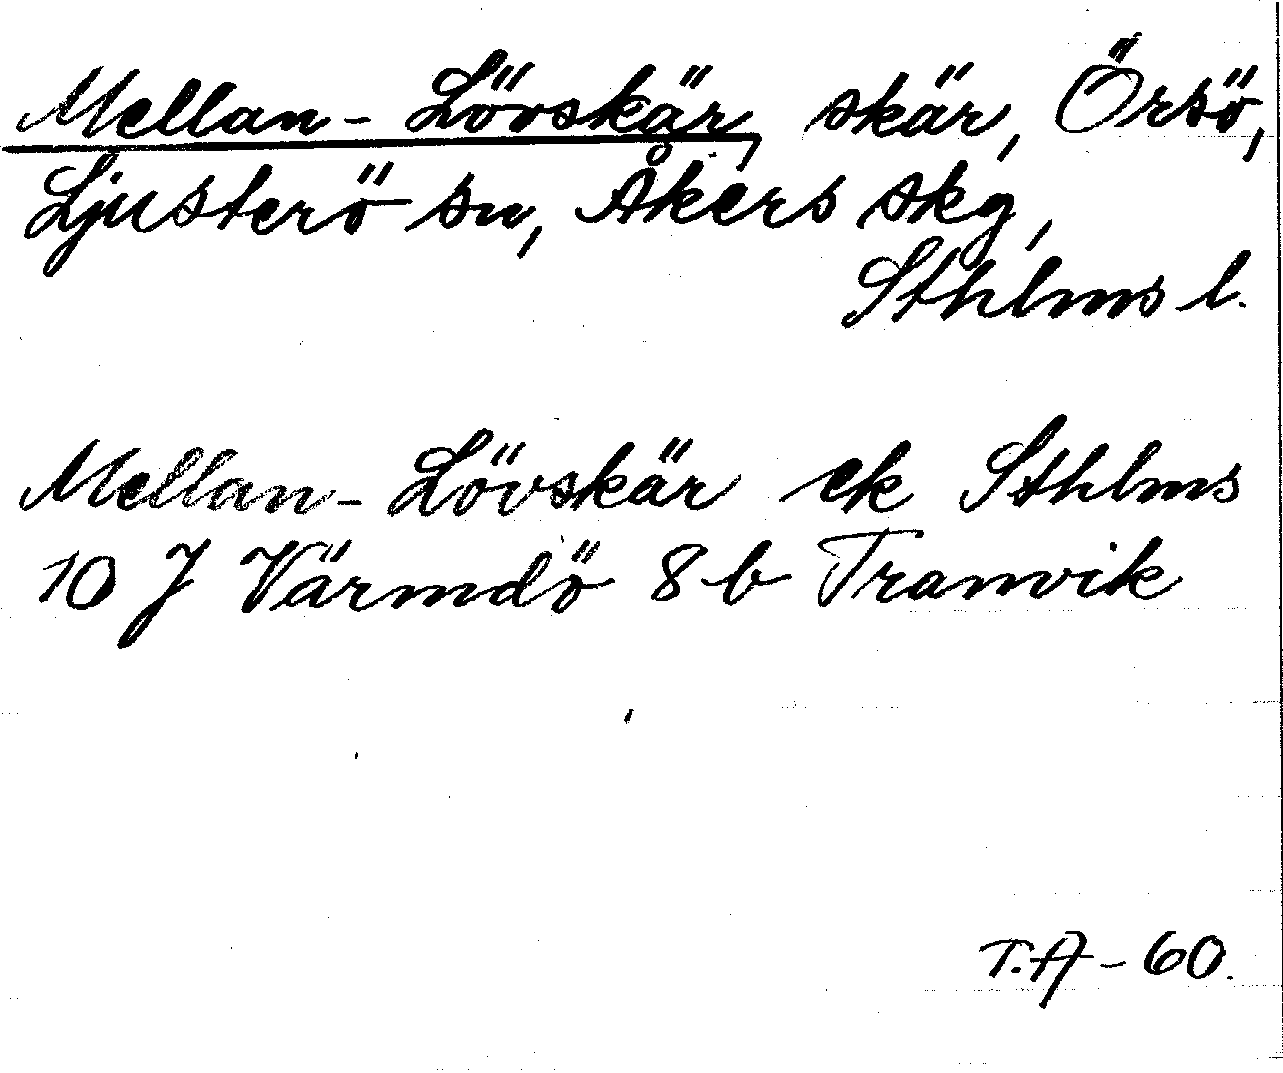 Mellan-Lövskär, skär, Örsö,
Ljusterö sn, Åkers skg,
Sthlms l.
Mellan-Lövskär ek Sthlms
10 J Värmdö 8 b Tranvik
T.A-60.